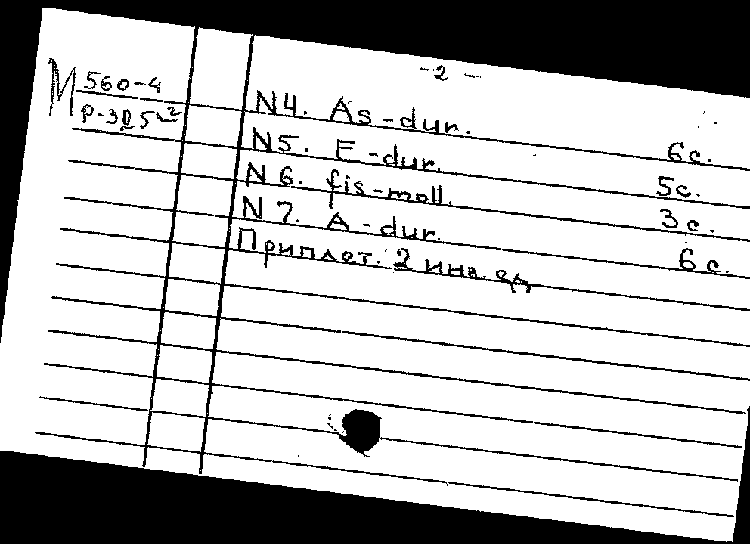 - 2 -
М 560-4
Р-305
N4. As-dur. 6с.
N5. E-dur. 5с.
N6. fis-moll. 3с.
N7. A-dur. 6с.
Приплет. 2 инв. ед.